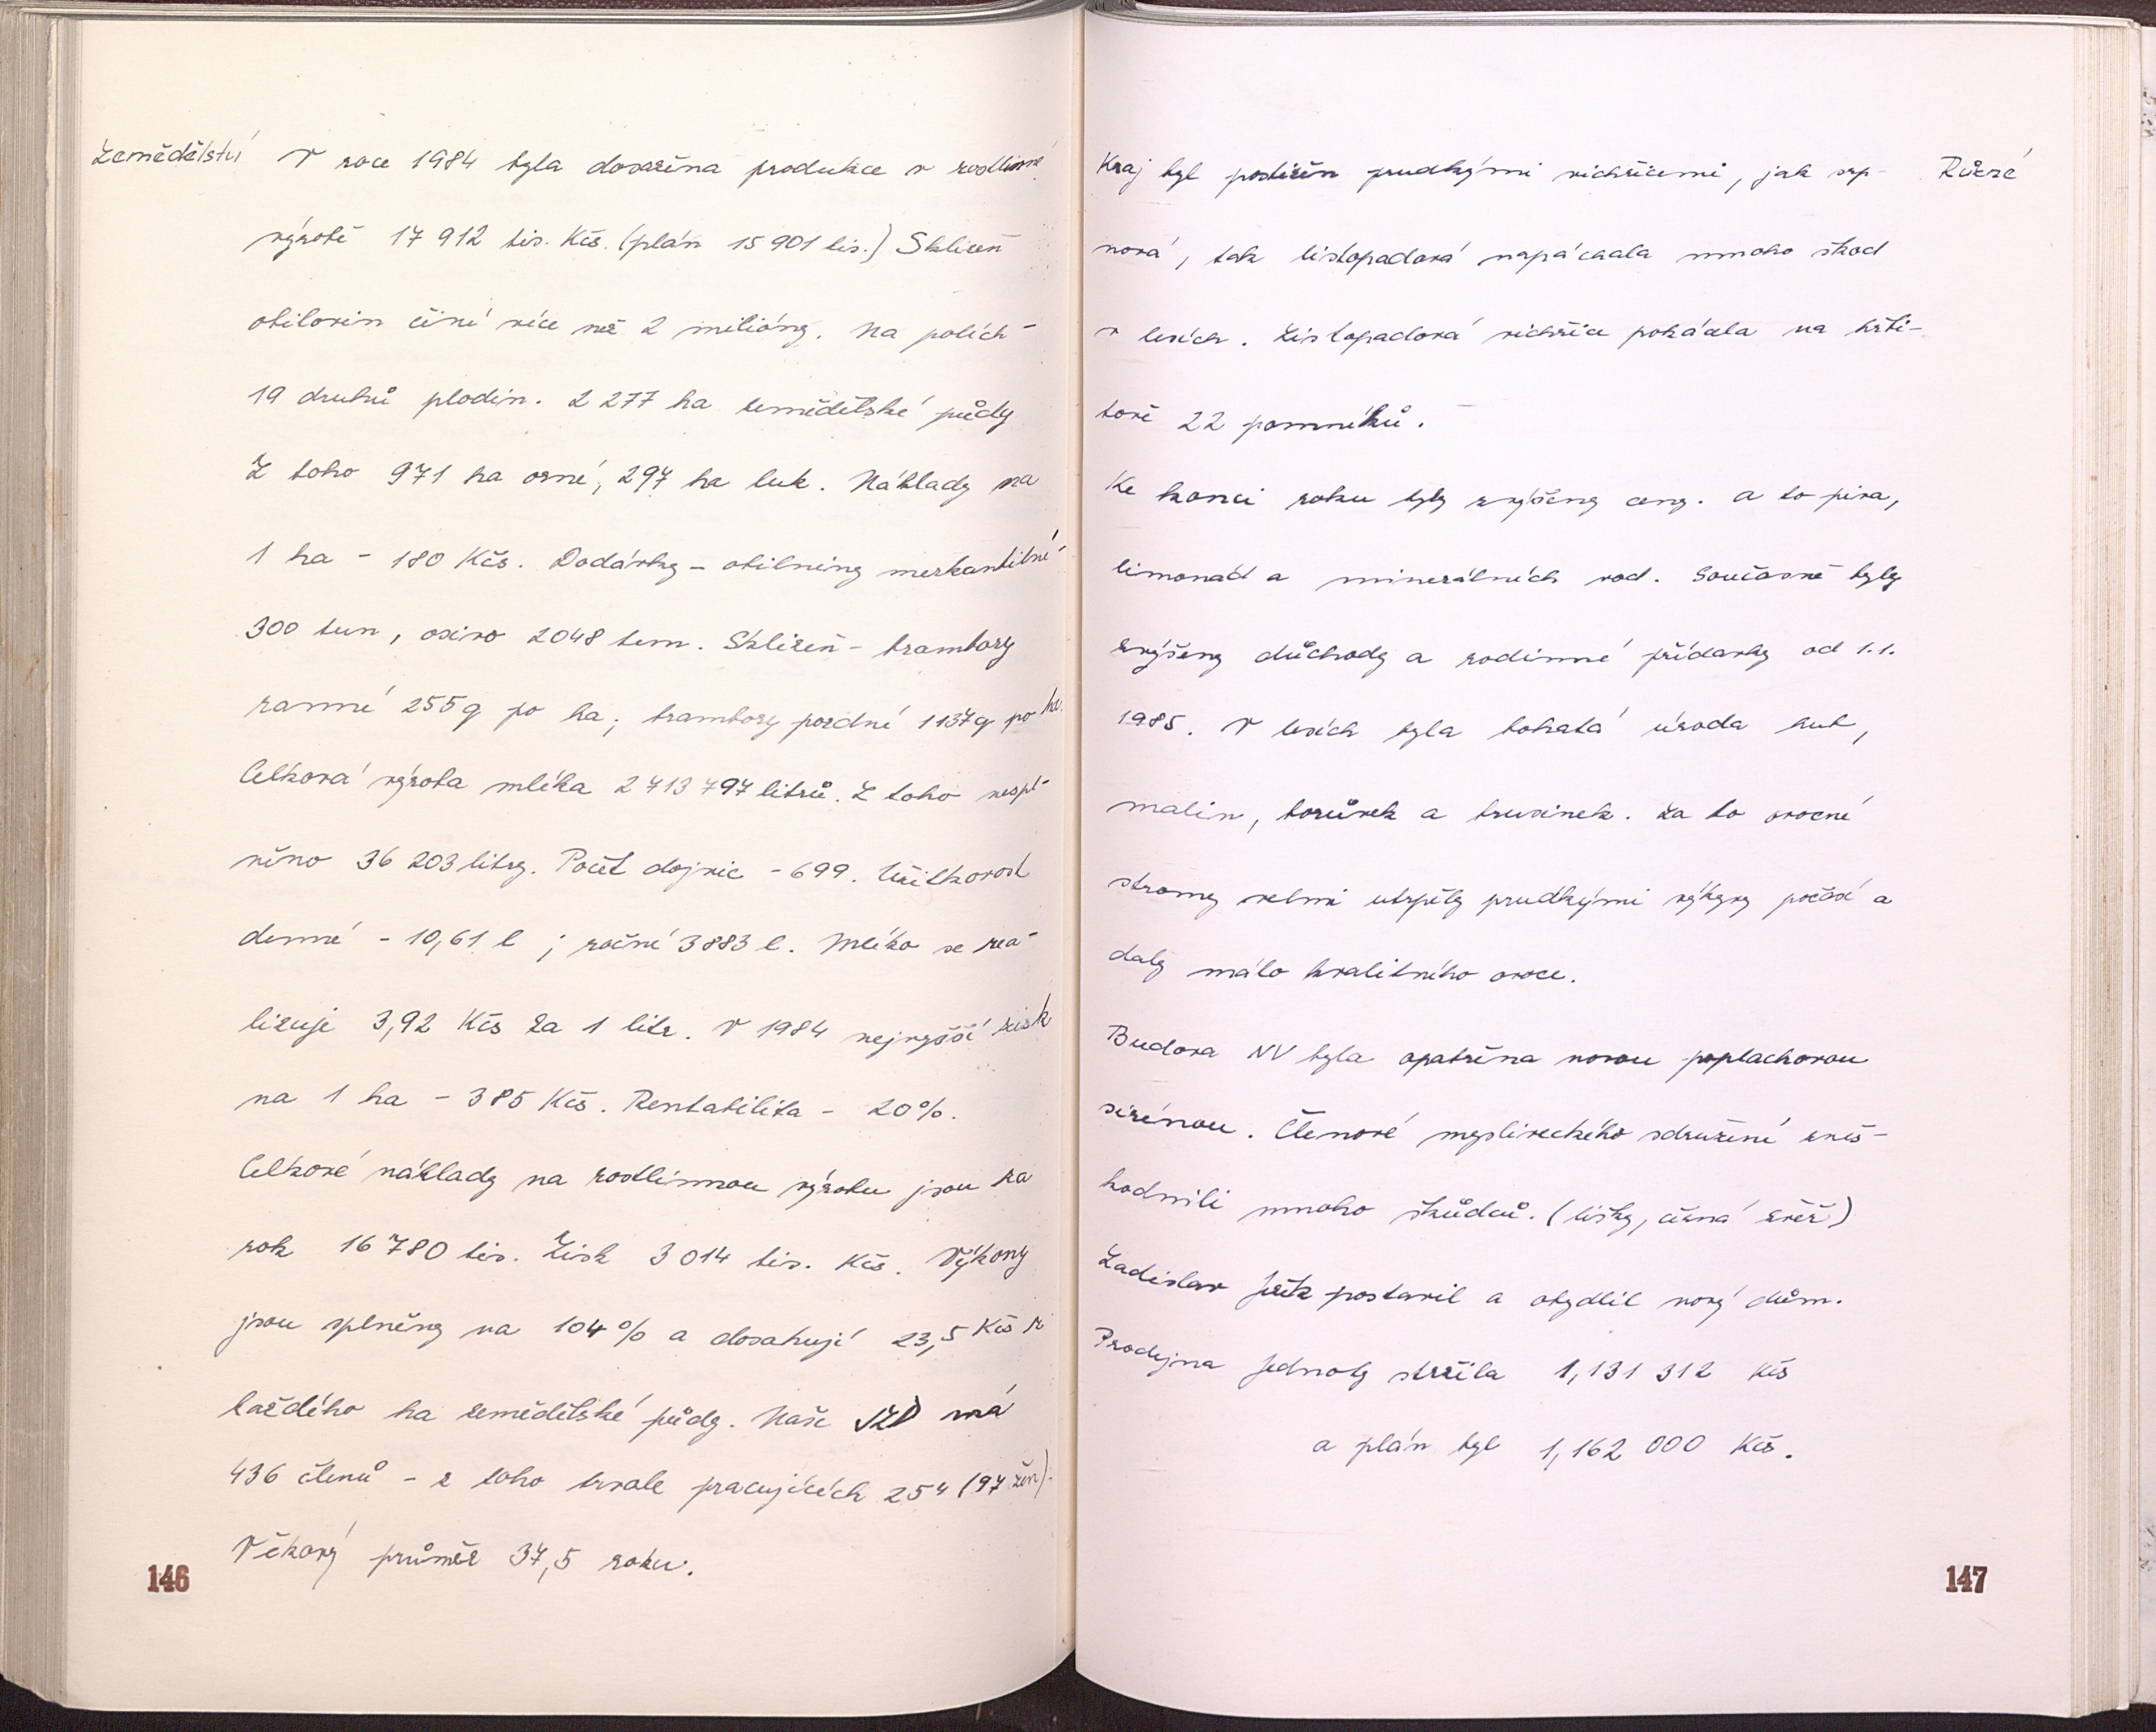 Zemědělství V roce 1984 byla dosažena produkce v rostlinné
výrobě 17 912 tis. Kčs. (plán 15 901 tis.) Sklizeň
obilovin činí více než 2 milióny. Na polích -
19 druhů plodin. 2 277 ha zemědělské půdy
Z toho 971 ha orné, 297 ha luk. Náklady na
1 ha - 180 Kčs. Dodávky - obilniny merkantilní -
300 tun, osivo 2048 tun. Sklizeň - brambory
ranné 255 q po ha; brambory pozdní 1137 q po ha.
Celková výroba mléka 2 713 797 litrů. Z toho nespl-
něno 36 203 litry. Počet dojnic - 699. Užitkovost
denně - 10,61 l ; roční 3883 l. Mléko se rea-
lizuje 3,92 Kčs za 1 litr. V 1984 nejvyšší zisk
na 1 ha - 385 Kčs. Rentabilita - 20%.
Celkové náklady na rostlinnou výrobu jsou za
rok 16 780 tis. Zisk 3 014 tis. Kčs. Výkony
jsou splněny na 104% a dosahují 23,5 Kčs z
každého ha zemědělské půdy. Naše JZD má
436 členů - z toho trvale pracujících 254 (97 žen).
Věkový průměr 37,5 roku.
146
Kraj byl postižen prudkými vichřicemi, jak srp- Různé
nová, tak listopadová napáchala mnoho škod
v lesích. Listopadová vichřice pokácela na hřbi-
tově 22 pomníků.
Ke konci roku byly zvýšeny ceny. a to piva,
limonád a minerálních vod. Současně byly
zvýšeny důchody a rodinné přídavky od 1.1.
1985. V lesích byla bohatá úroda hub,
malin, borůvek a brusinek. Za to ovocné
stromy velmi utrpěly prudkými výkyvy počasí a
daly málo kvalitního ovoce.
Budova NV byla opatřena novou poplachovou
sirénou. Členové mysliveckého sdružení zneš-
kodnili mnoho škůdců. (lišky, černá zvěř)
Ladislav postavil a obydlil nový dům.
Prodejna Jednoty stržila 1,131 312 Kčs
a plán byl 1,162 000 Kčs.
147